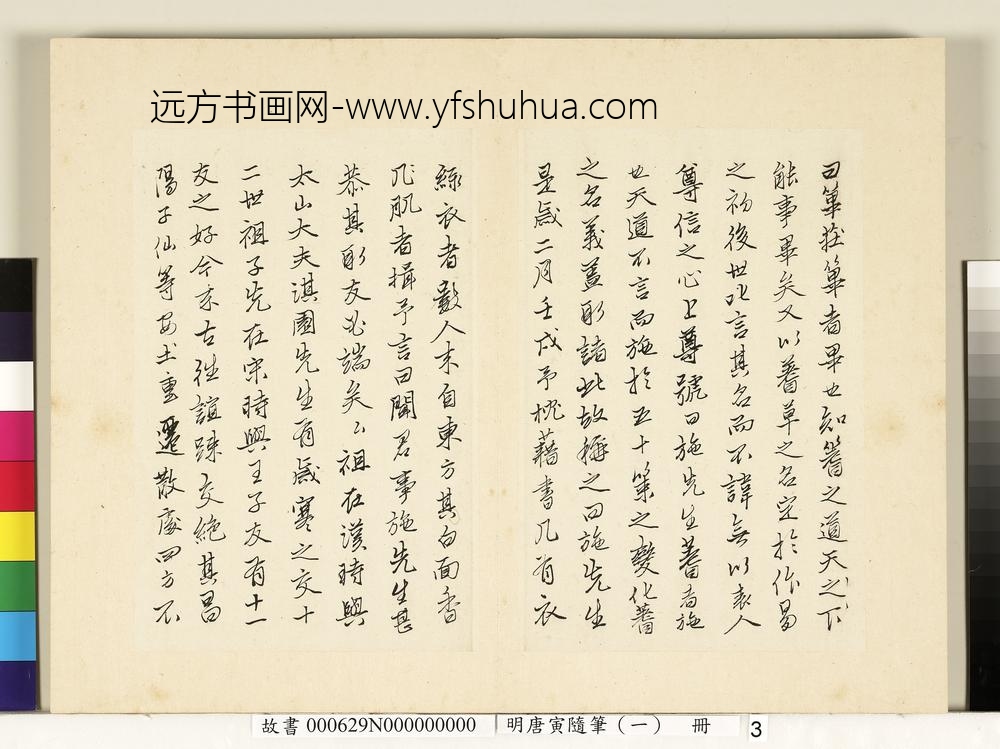 远方书画网-www.yfshuhua.com
曰箄莊箄者畢也知蓍之道天之下
能事畢矣又以蓍草之名定於作易
之初後世咇言其名而不諱無以表人
尊信之心上尊號曰施先生蓍者施
也天道不言而施於五十策之變化蓍
之名義蓋取諸此故稱之曰施先生
是歲二月壬戌予枕藉書几有衣
綠衣者數人来自東方其白面香
肌者揖予言曰聞君事施先生甚
恭其取友必端矣祖在漢時與
太山大夫淇園先生有歲寒之交十
二世祖子先在宋時與王子友有十一
友之好今来古往誼踈交絕其昌
陽子仙等安土重遷散處四方不
故書 000629N000000000 明唐寅隨筆(一) 冊 3